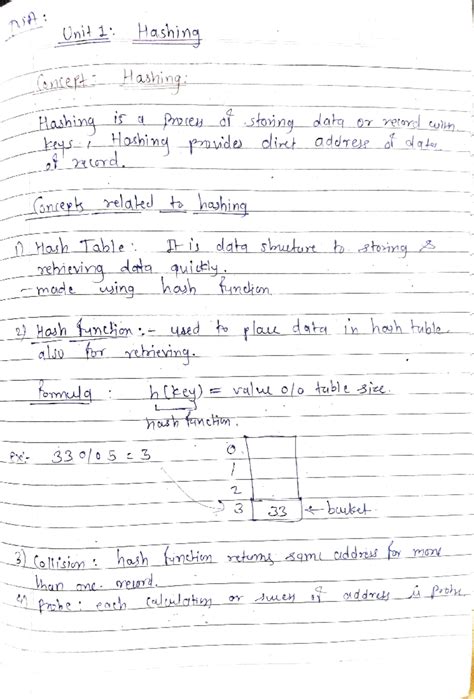 DSA:
Unit 1: Hashing
Concept: Hashing:
Hashing is a process of storing data or record with
keys, Hashing provides diret address of data
of record.
Concepts related to hashing
1) Hash Table: It is data structure to storing &
retrieving data quickly.
- made using hash function
2) Hash function:- used to place data in hash table.
also for retrieving.
Formula : h(key) = value % table size.
hash function.
Ex:- 33 % 5 = 3
0
1
2
3 33 ← bucket
3) Collision: hash function returns same address for more
than one record.
4) Probe: each calculation or of address is Probe